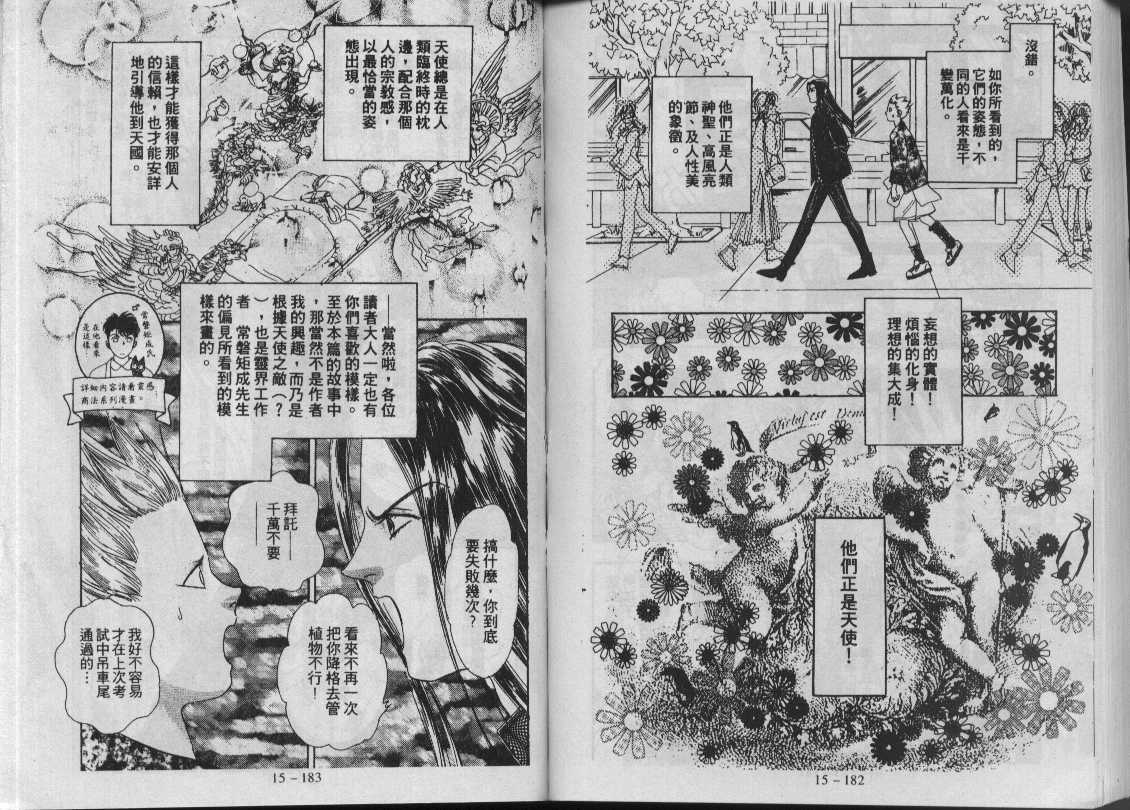 沒錯。
如你所看到的，
它們的姿態，不
同的人看來是千
變萬化。
他們正是人類
神聖、高風亮
節、及人性美
的象徵。
妄想的實體！
煩惱的化身！
理想的集大成！
他們正是天使！
15－182
天使總是在人
類臨終時的枕
邊，配合那個
人的宗教感，
以最恰當的姿
態出現。
這樣才能獲得那個人
的信賴，也才能安詳
地引導他到天國。
——當然啦，各位
讀者大人一定也有
你們喜歡的模樣。
至於本篇的故事中
，那當然不是作者
我的興趣，而乃是
根據天使之敵（？
），也是靈界工作
者　常磐矩成先生
的偏見所看到的模
樣來畫的。
♂常磐矩成氏
在他看來
是這樣
詳細內容請看靈感
商法系列漫畫。
搞什麼，你到底
要失敗幾次？
拜託——
千萬不要
——
看來不再一次
把你降格去管
植物不行！
我好不容易
才在上次考
試中吊車尾
通過的…
15－183